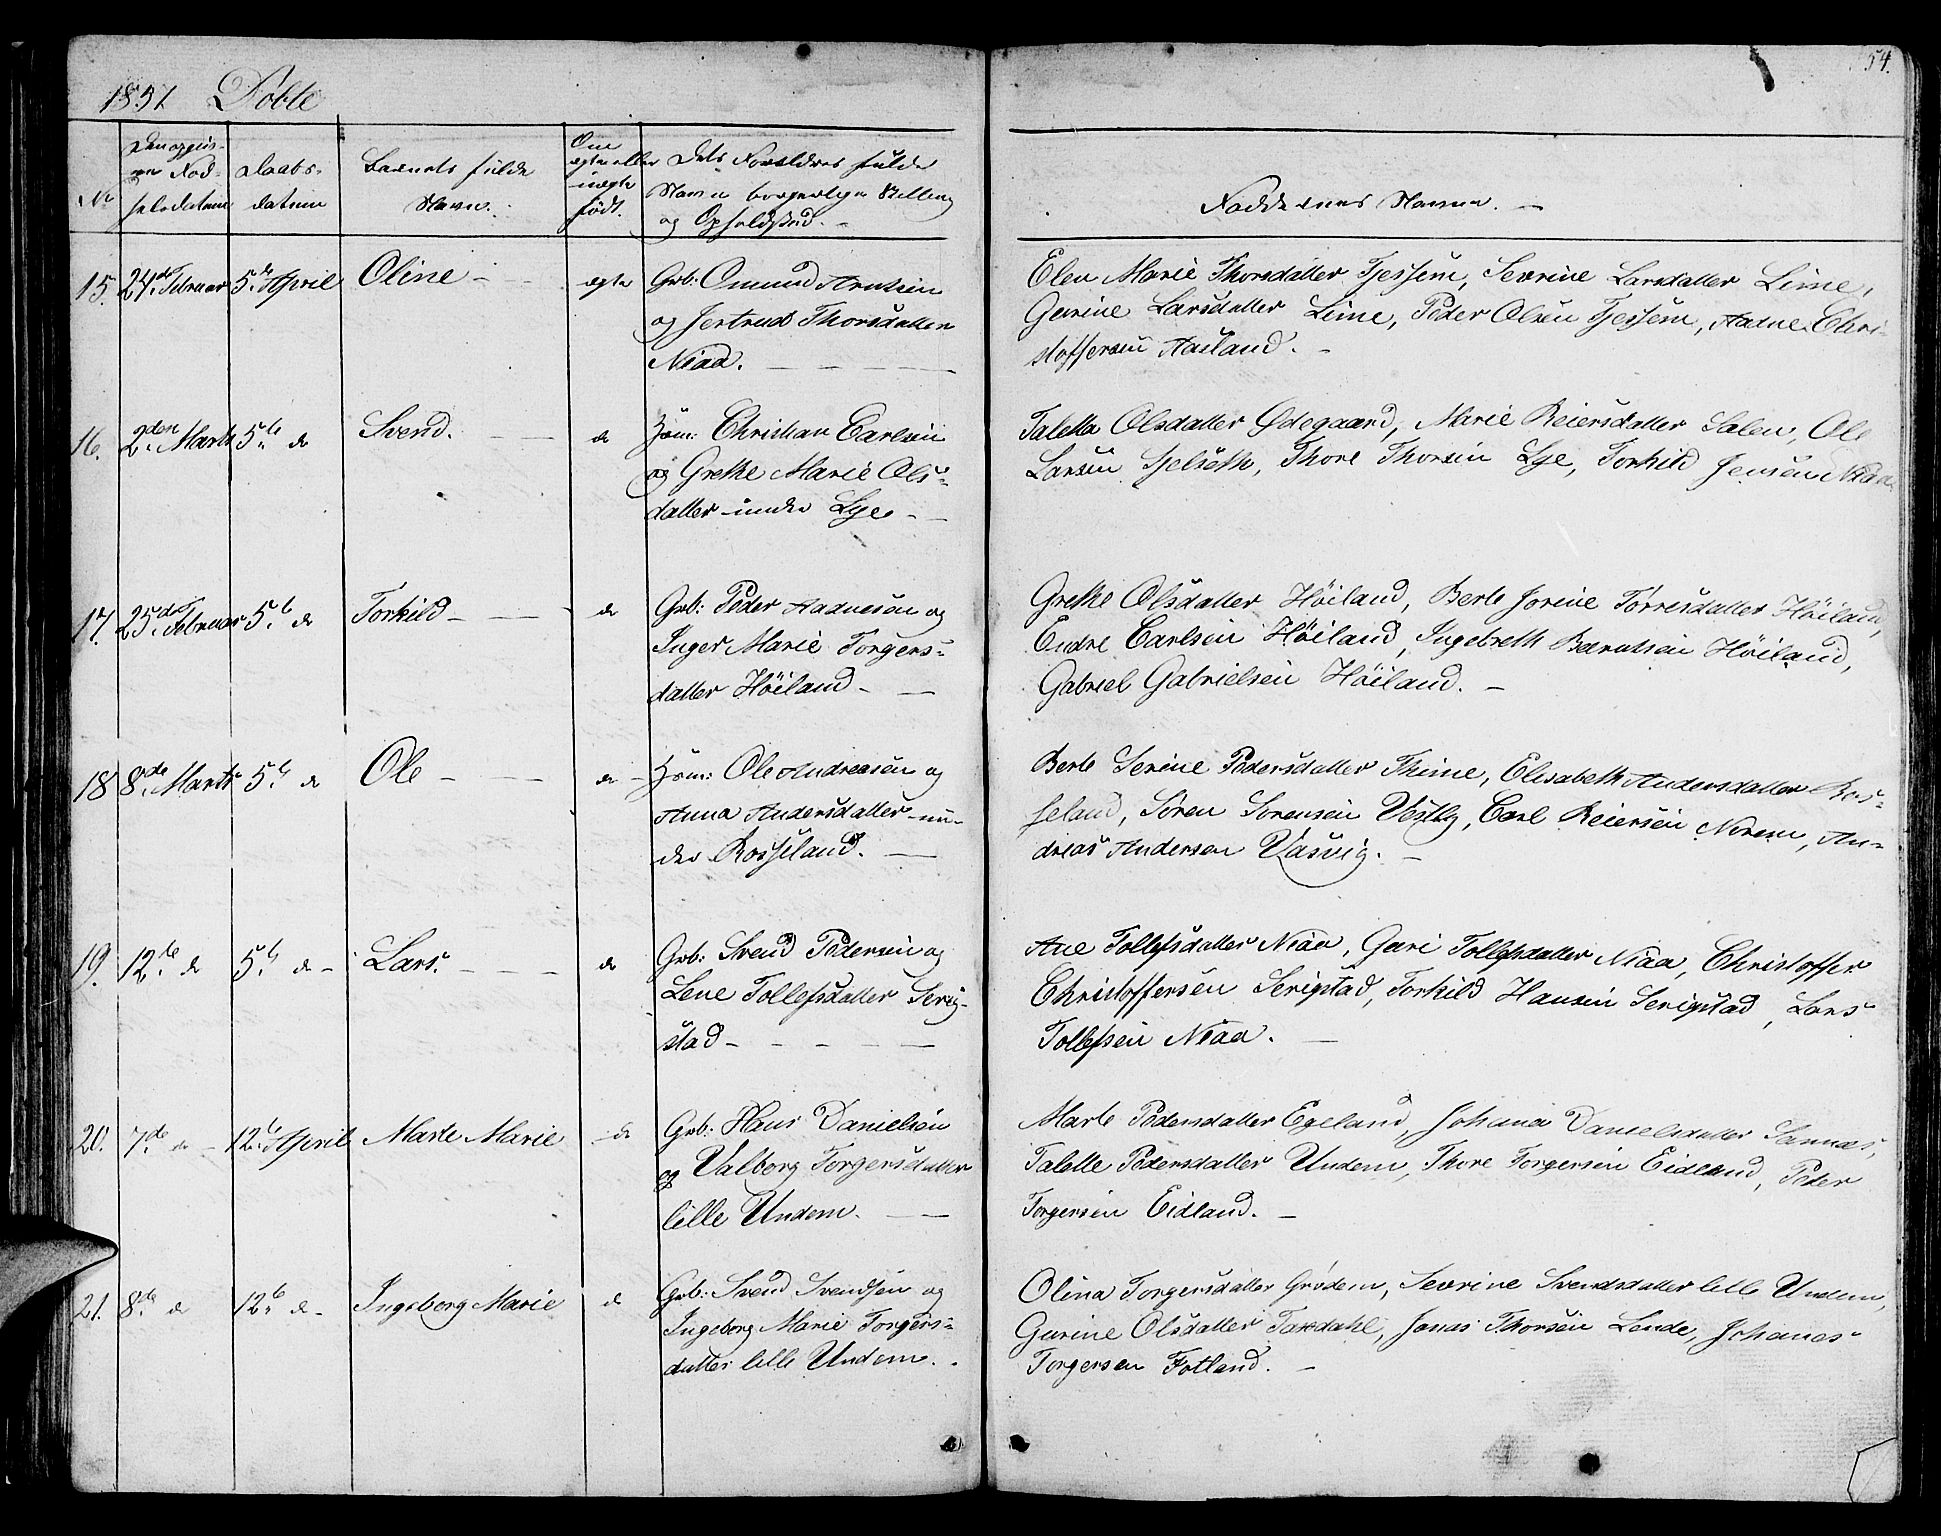 1857 Döbte
54.
No
Den opgiv-
ne Fød-
selsdatum
Daabs-
datum
Barnets fulde
Navn.
Om
ægte eller
uægte
født.
Dets Forældres fulde
Navn borgerlige Stilling
og Opholdsted. -
Faddernes Navne. -
15. 24de Februar 5te April Oline - - ægte
Grb: Omund Arntsen
og Jertrud Thorsdatter
Niaa.
Elen Marie Thorsdatter Tjessem, Sevrine Larsdatter Lime,
Gurine Larsdatter Lime, Peder Olsen Tjessem, Aadne Chri-
stoffersen Aasland. -
16. 2den Marts 5te do Svend. - - do
Huus: Christian Carlsen
og Grethe Marie Ols-
datter under Lye -
Taletta Olsdatter Ødegaard, Marie Reiersdatter Salen, Ole
Larsen Tjelseth, Thore Thorsen Lye, Torkild Jensen Niaa.
17. 25de Februar 5te do Torkild - - do
Grb: Peder Aadnesøn og
Inger Marie Torgers-
datter Höiland -
Grethe Olsdatter Höiland, Berte Jorine Torresdatter Höiland,
Endre Carlsen Höiland, Ingebreth Berntsen Höiland,
Gabriel Gabrielsen Höiland. -
18 8de Marts 5te do Ole - - do -
Huus: Ole Andreasøn og
Anna Andersdatter un-
der Rosseland. -
Berte Serine Pedersdatter Thime, Elisabeth Andersdatter Ros-
seland, Sören Sörensen Vestly, Carl Reiersen Norem, An-
dreas Andersen Vasvig. -
19. 12te do 5te do - Lars. - - - do
Grb: Svend Pedersen og
Lene Tollefsdatter Serig-
stad - - - -
Ane Tollefsdatter Niaa, Guri Tollefsdatter Niaa, Christoffer
Christoffersen Serigstad, Torkild Hansen Serigstad, Lars
Tollefsen Niaa. -
20. 7de do - 12te April Marte Marie - do
Grb: Hans Danielsen
og Valborg Torgersdatter
lille Undem. -
Marte Pedersdatter Egeland, Johana Danielsdatter Sannes,
Talette Pedersdatter Undem, Thore Torgersen Eidland, Peder
Torgersen Eidland. -
21. 8de do 12te do - Ingeborg Marie do
Grb: Svend Svendsen og
Ingeborg Marie Torgers-
datter lille Undem. -
Olina Torgersdatter Grödem, Sevrine Svendsdatter lille Undem,
Gurine Olsdatter Taxdahl, Jonas Thorsen Lende, Johanes
Torgersen Fotland. -